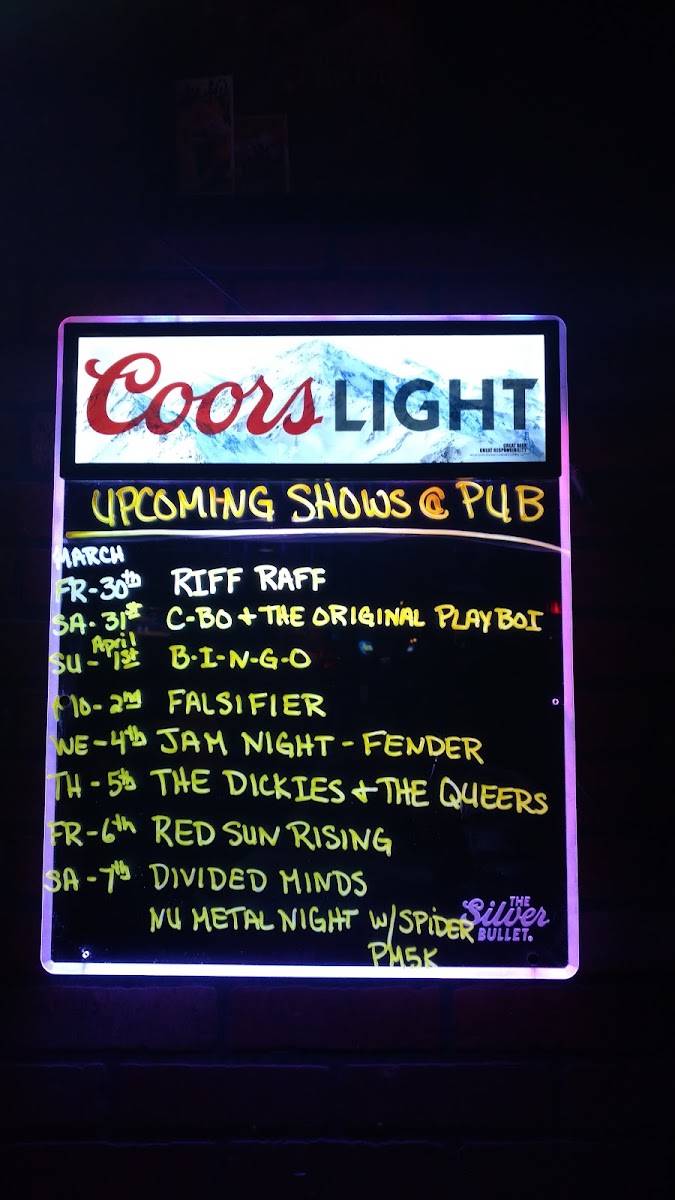 Coors LIGHT
GREAT BEER
GREAT RESPONSIBILITY
UPCOMING SHOWS @ PUB
MARCH
FR-30th RIFF RAFF
SA-31st C-BO + THE ORIGINAL PLAYBOI
April
SU-1st B-I-N-G-O
MO-2nd FALSIFIER
WE-4th JAM NIGHT - FENDER
TH-5th THE DICKIES + THE QUEERS
FR-6th RED SUN RISING
SA-7th DIVIDED MINDS
NU METAL NIGHT W/SPIDER
PM5K
THE
Silver
BULLET.